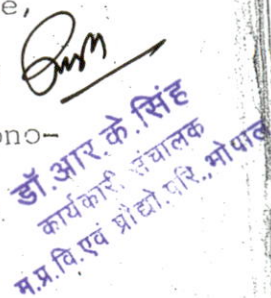 e,
ono-
डॉ. आर. के. सिंह
कार्यकारी संचालक
म.प्र.वि.एवं प्रौद्यो.परि., भोपाल